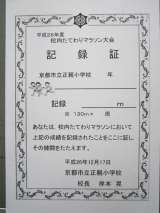 平成26年度
校内たてわりマラソン大会
記録証
京都市立正親小学校 年
記録 m
(1周130m× 周)
あなたは、校内たてわりマラソンにおいて
上記の成績を記録されたことをここに証し
その健闘をたたえます。
平成26年12月17日
京都市立正親小学校
校長 岸本